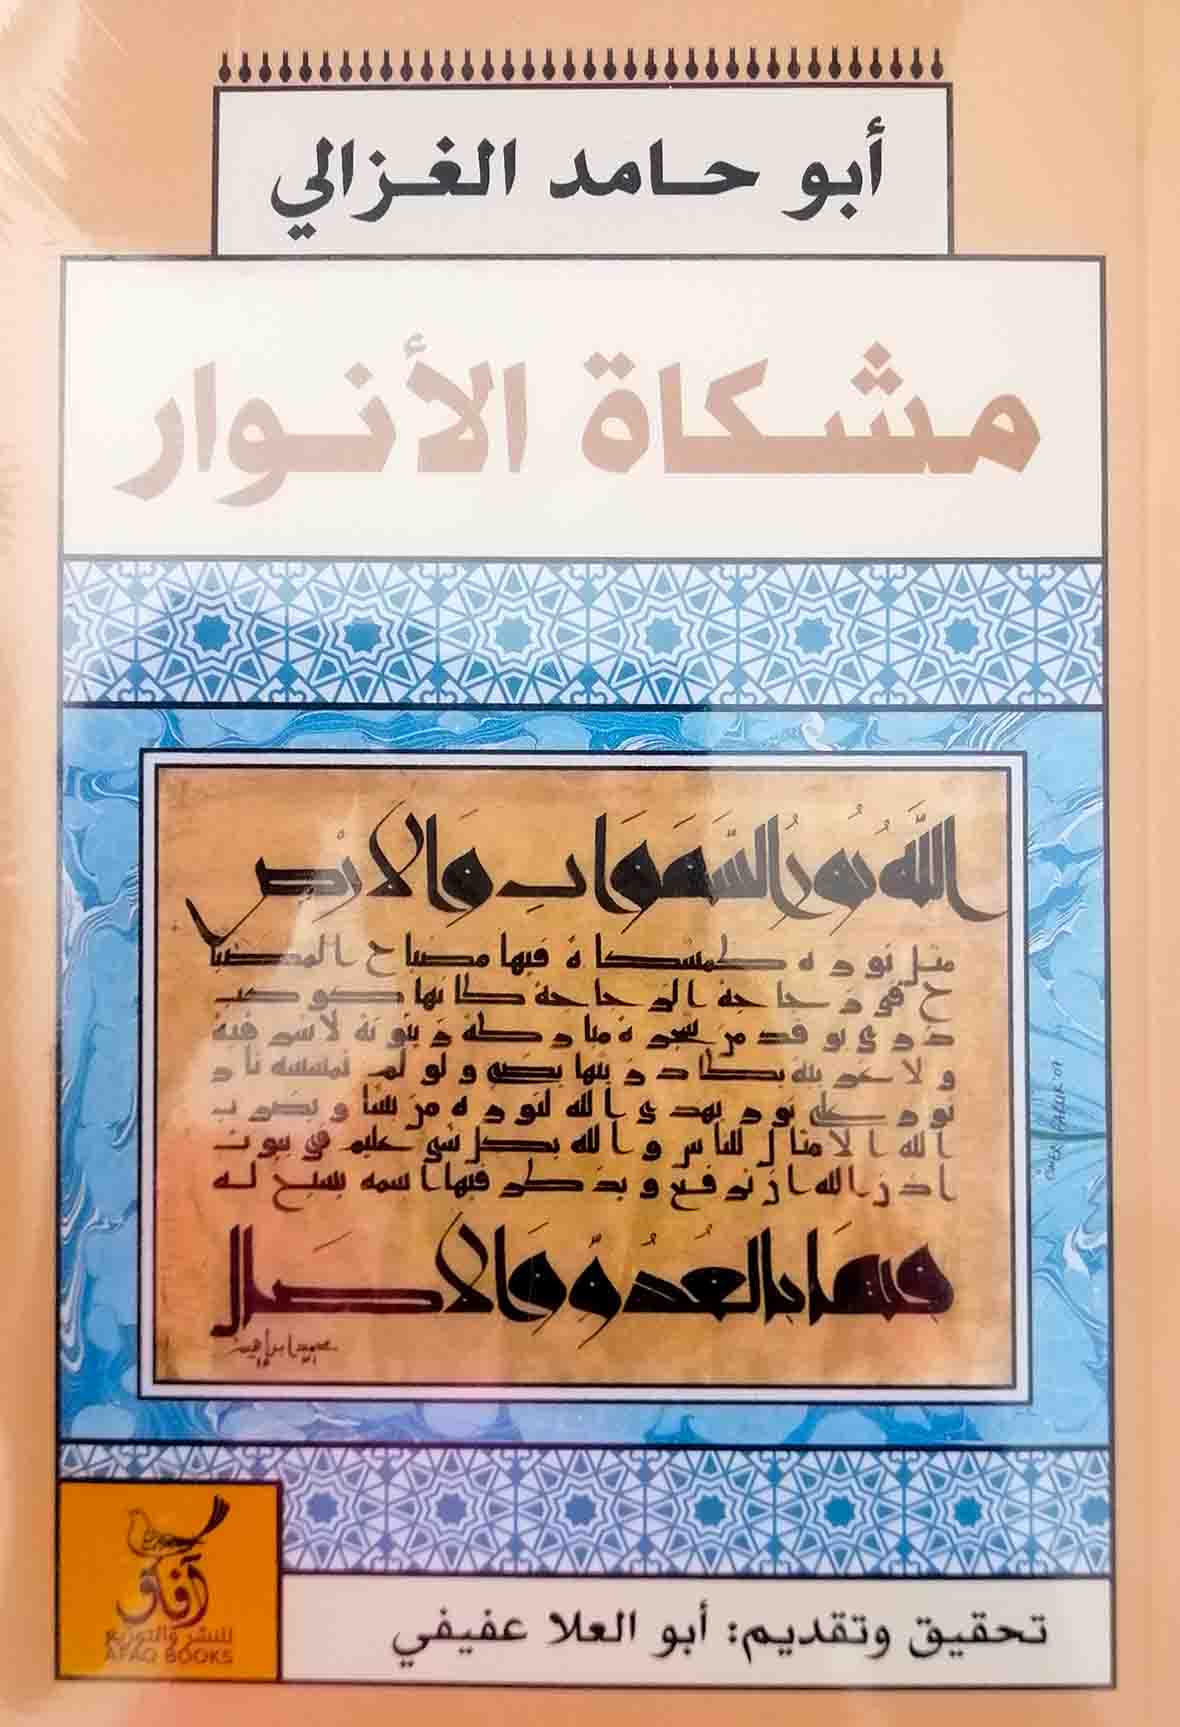 أبو حامد الغزالي
مشكاة الأنوار
الله نُورُ السَّمَوَاتِ وَالارْضِ
مثل نوره كمشكاة فيها مصباح المصبا
ح في زجاجة الزجاجة كانها كوكب
دري يوقد من شجرة مباركة زيتونة لا شرقية
ولا غربية يكاد زيتها يضيء ولو لم تمسسه نار
نور على نور يهدي الله لنوره من يشا ويضرب
الله الامثال للناس والله بكل شي عليم في بيوت
اذن الله ان ترفع ويذكر فيها اسمه يسبح له
فيها بالغُدُوِّ وَالاصَال
OMER FARUK '07
آفاق
للنشر والتوزيع
AFAQ BOOKS
تحقيق وتقديم: أبو العلا عفيفي